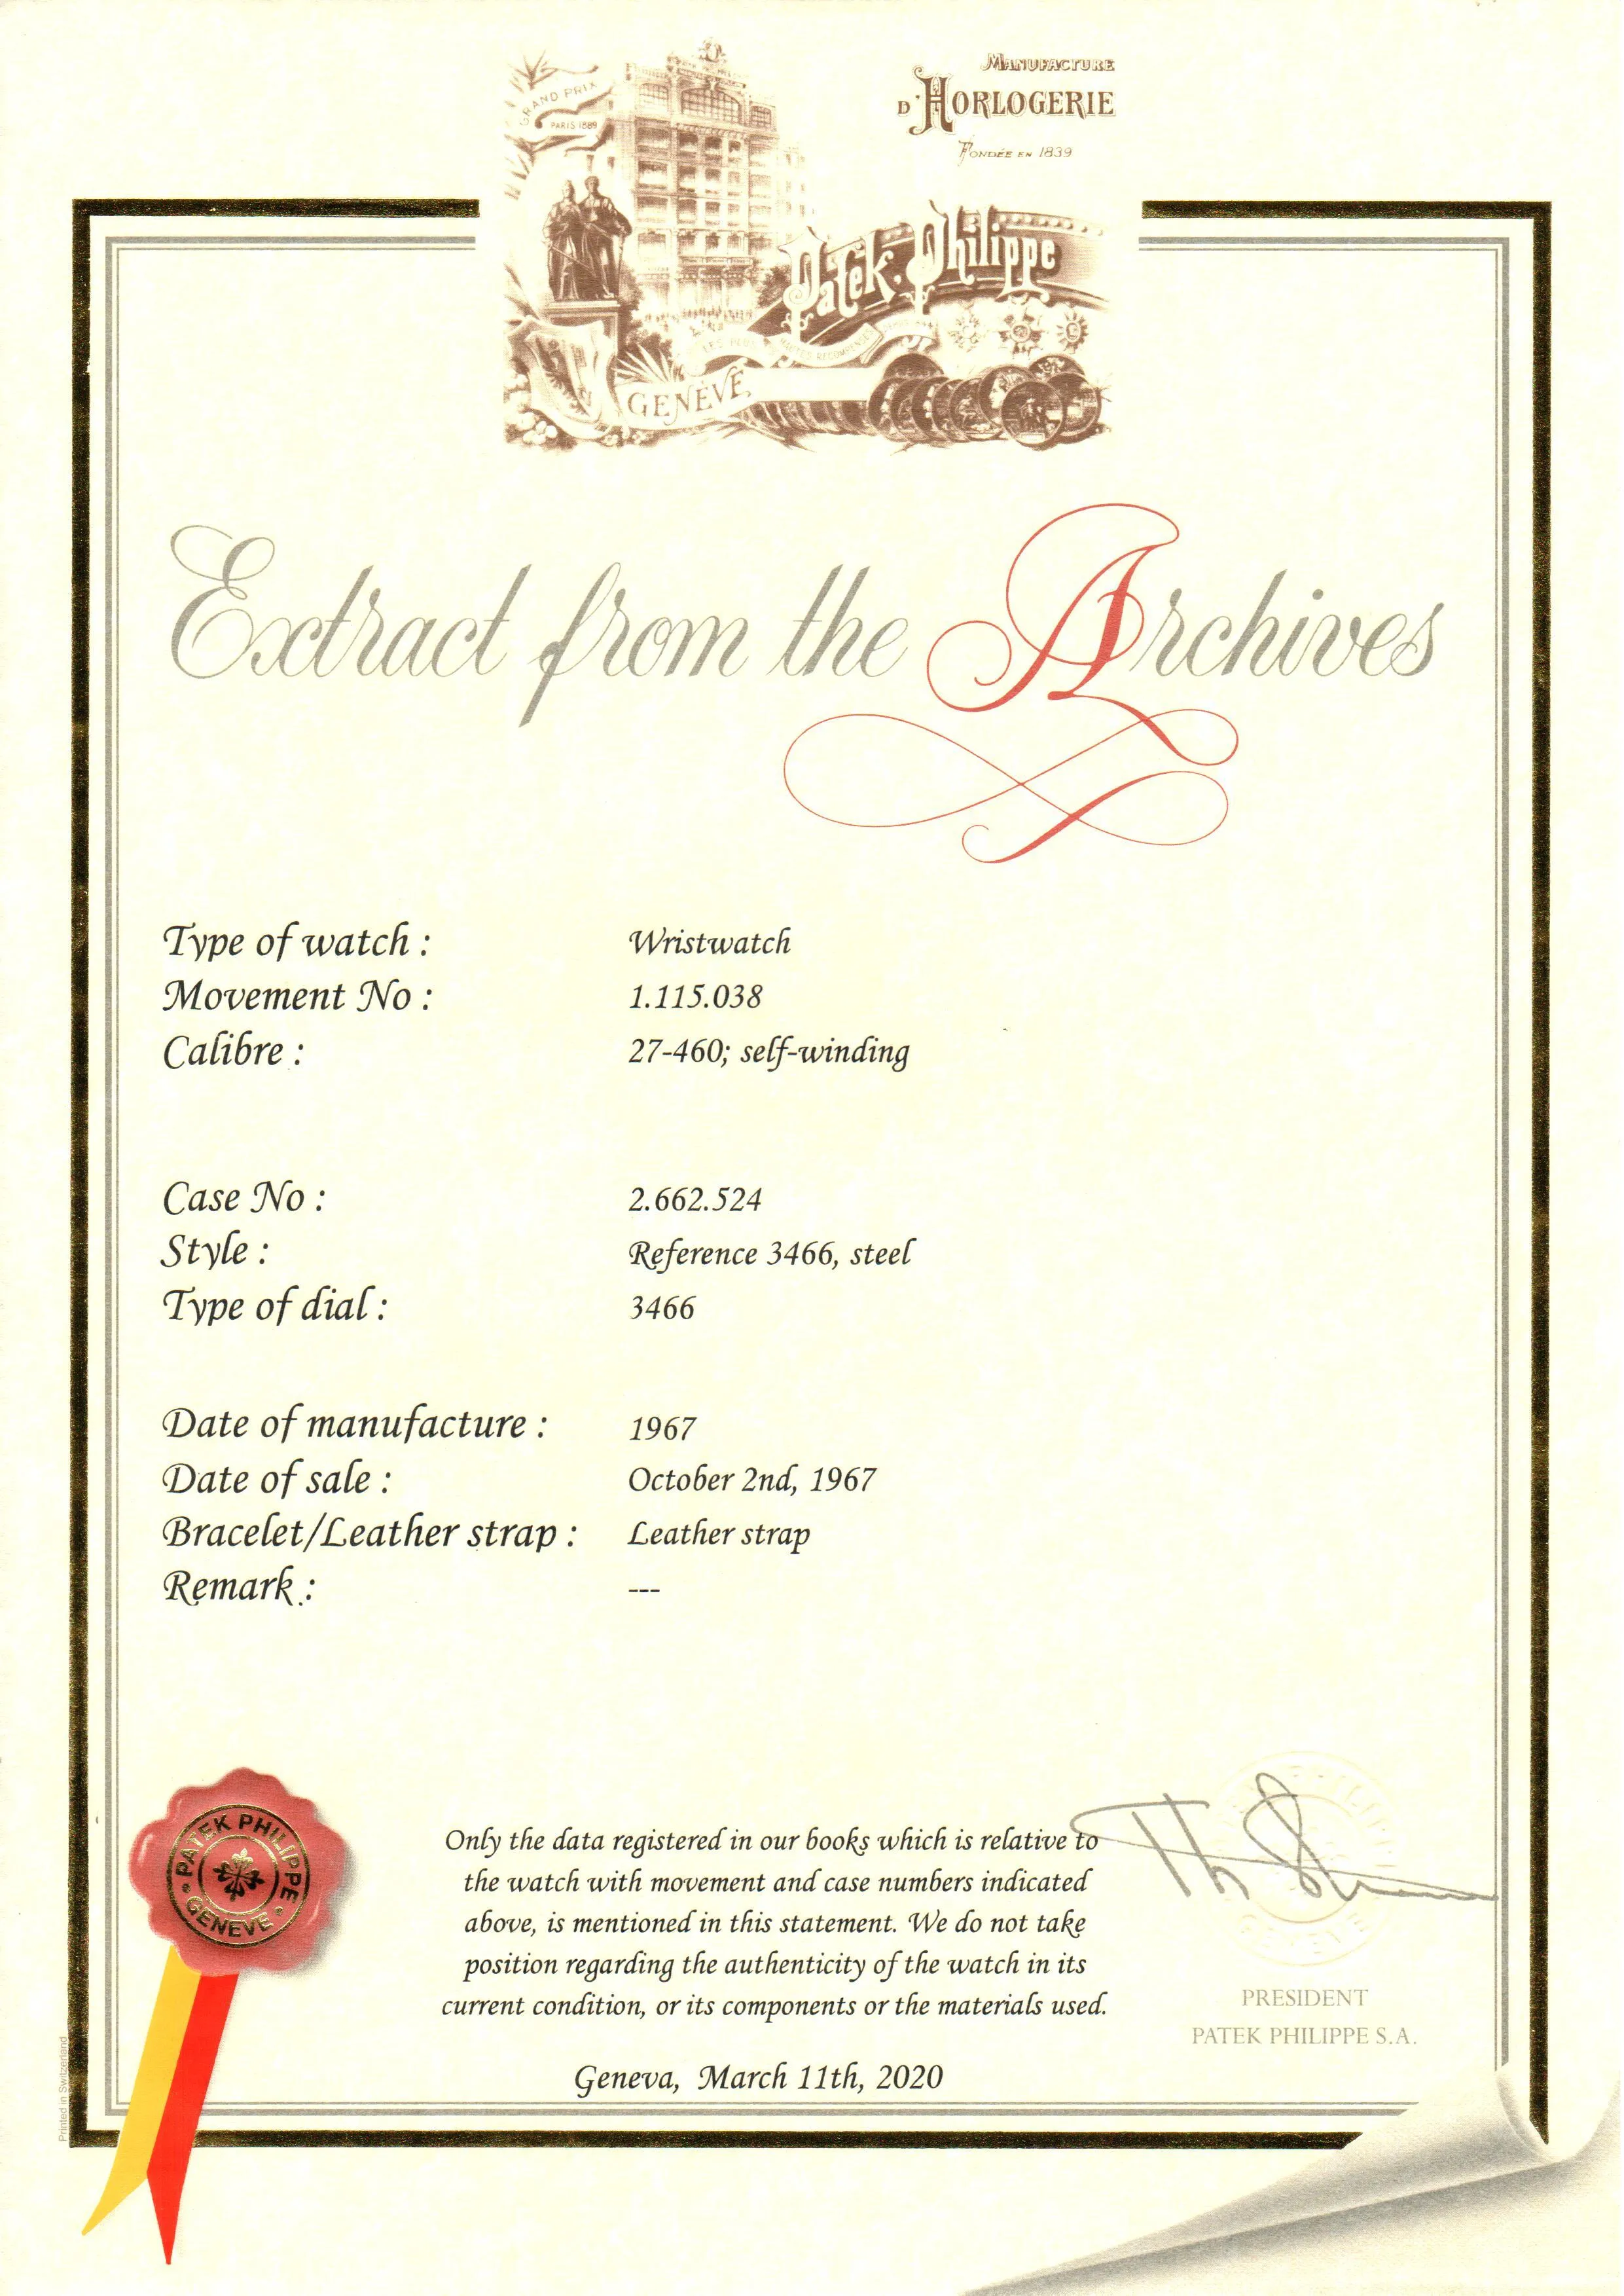 MANUFACTURE
D'HORLOGERIE
FONDÉE EN 1839
GRAND PRIX
PARIS 1889
Patek Philippe
LES PLUS HAUTES RECOMPENSES
GENÈVE
Extract from the Archives
Type of watch : Wristwatch
Movement No : 1.115.038
Calibre : 27-460; self-winding
Case No : 2.662.524
Style : Reference 3466, steel
Type of dial : 3466
Date of manufacture : 1967
Date of sale : October 2nd, 1967
Bracelet/Leather strap : Leather strap
Remark : ---
PATEK PHILIPPE
GENEVE
Only the data registered in our books which is relative to
the watch with movement and case numbers indicated
above, is mentioned in this statement. We do not take
position regarding the authenticity of the watch in its
current condition, or its components or the materials used.
PRESIDENT
PATEK PHILIPPE S.A.
Geneva, March 11th, 2020
Printed in Switzerland